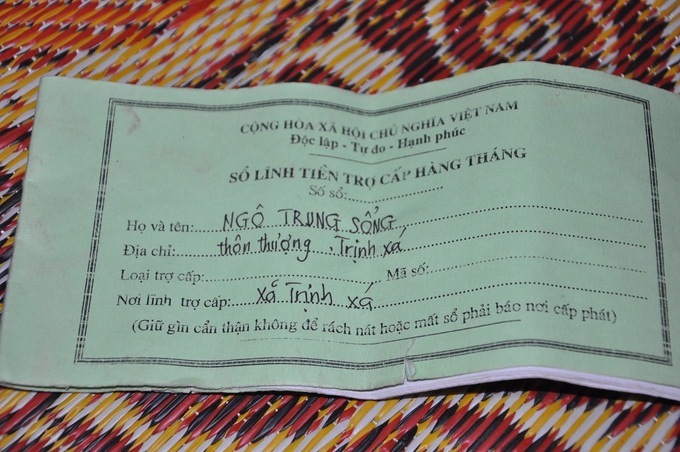 CỘNG HÒA XÃ HỘI CHỦ NGHĨA VIỆT NAM
Độc lập - Tự do - Hạnh phúc
SỔ LĨNH TIỀN TRỢ CẤP HÀNG THÁNG
Số sổ:
Họ và tên: NGÔ TRUNG SỔNG
Địa chỉ: thôn thượng, Trịnh xá
Loại trợ cấp: Mã số:
Nơi lĩnh trợ cấp: xã Trịnh xá
(Giữ gìn cẩn thận không để rách nát hoặc mất sổ phải báo nơi cấp phát)